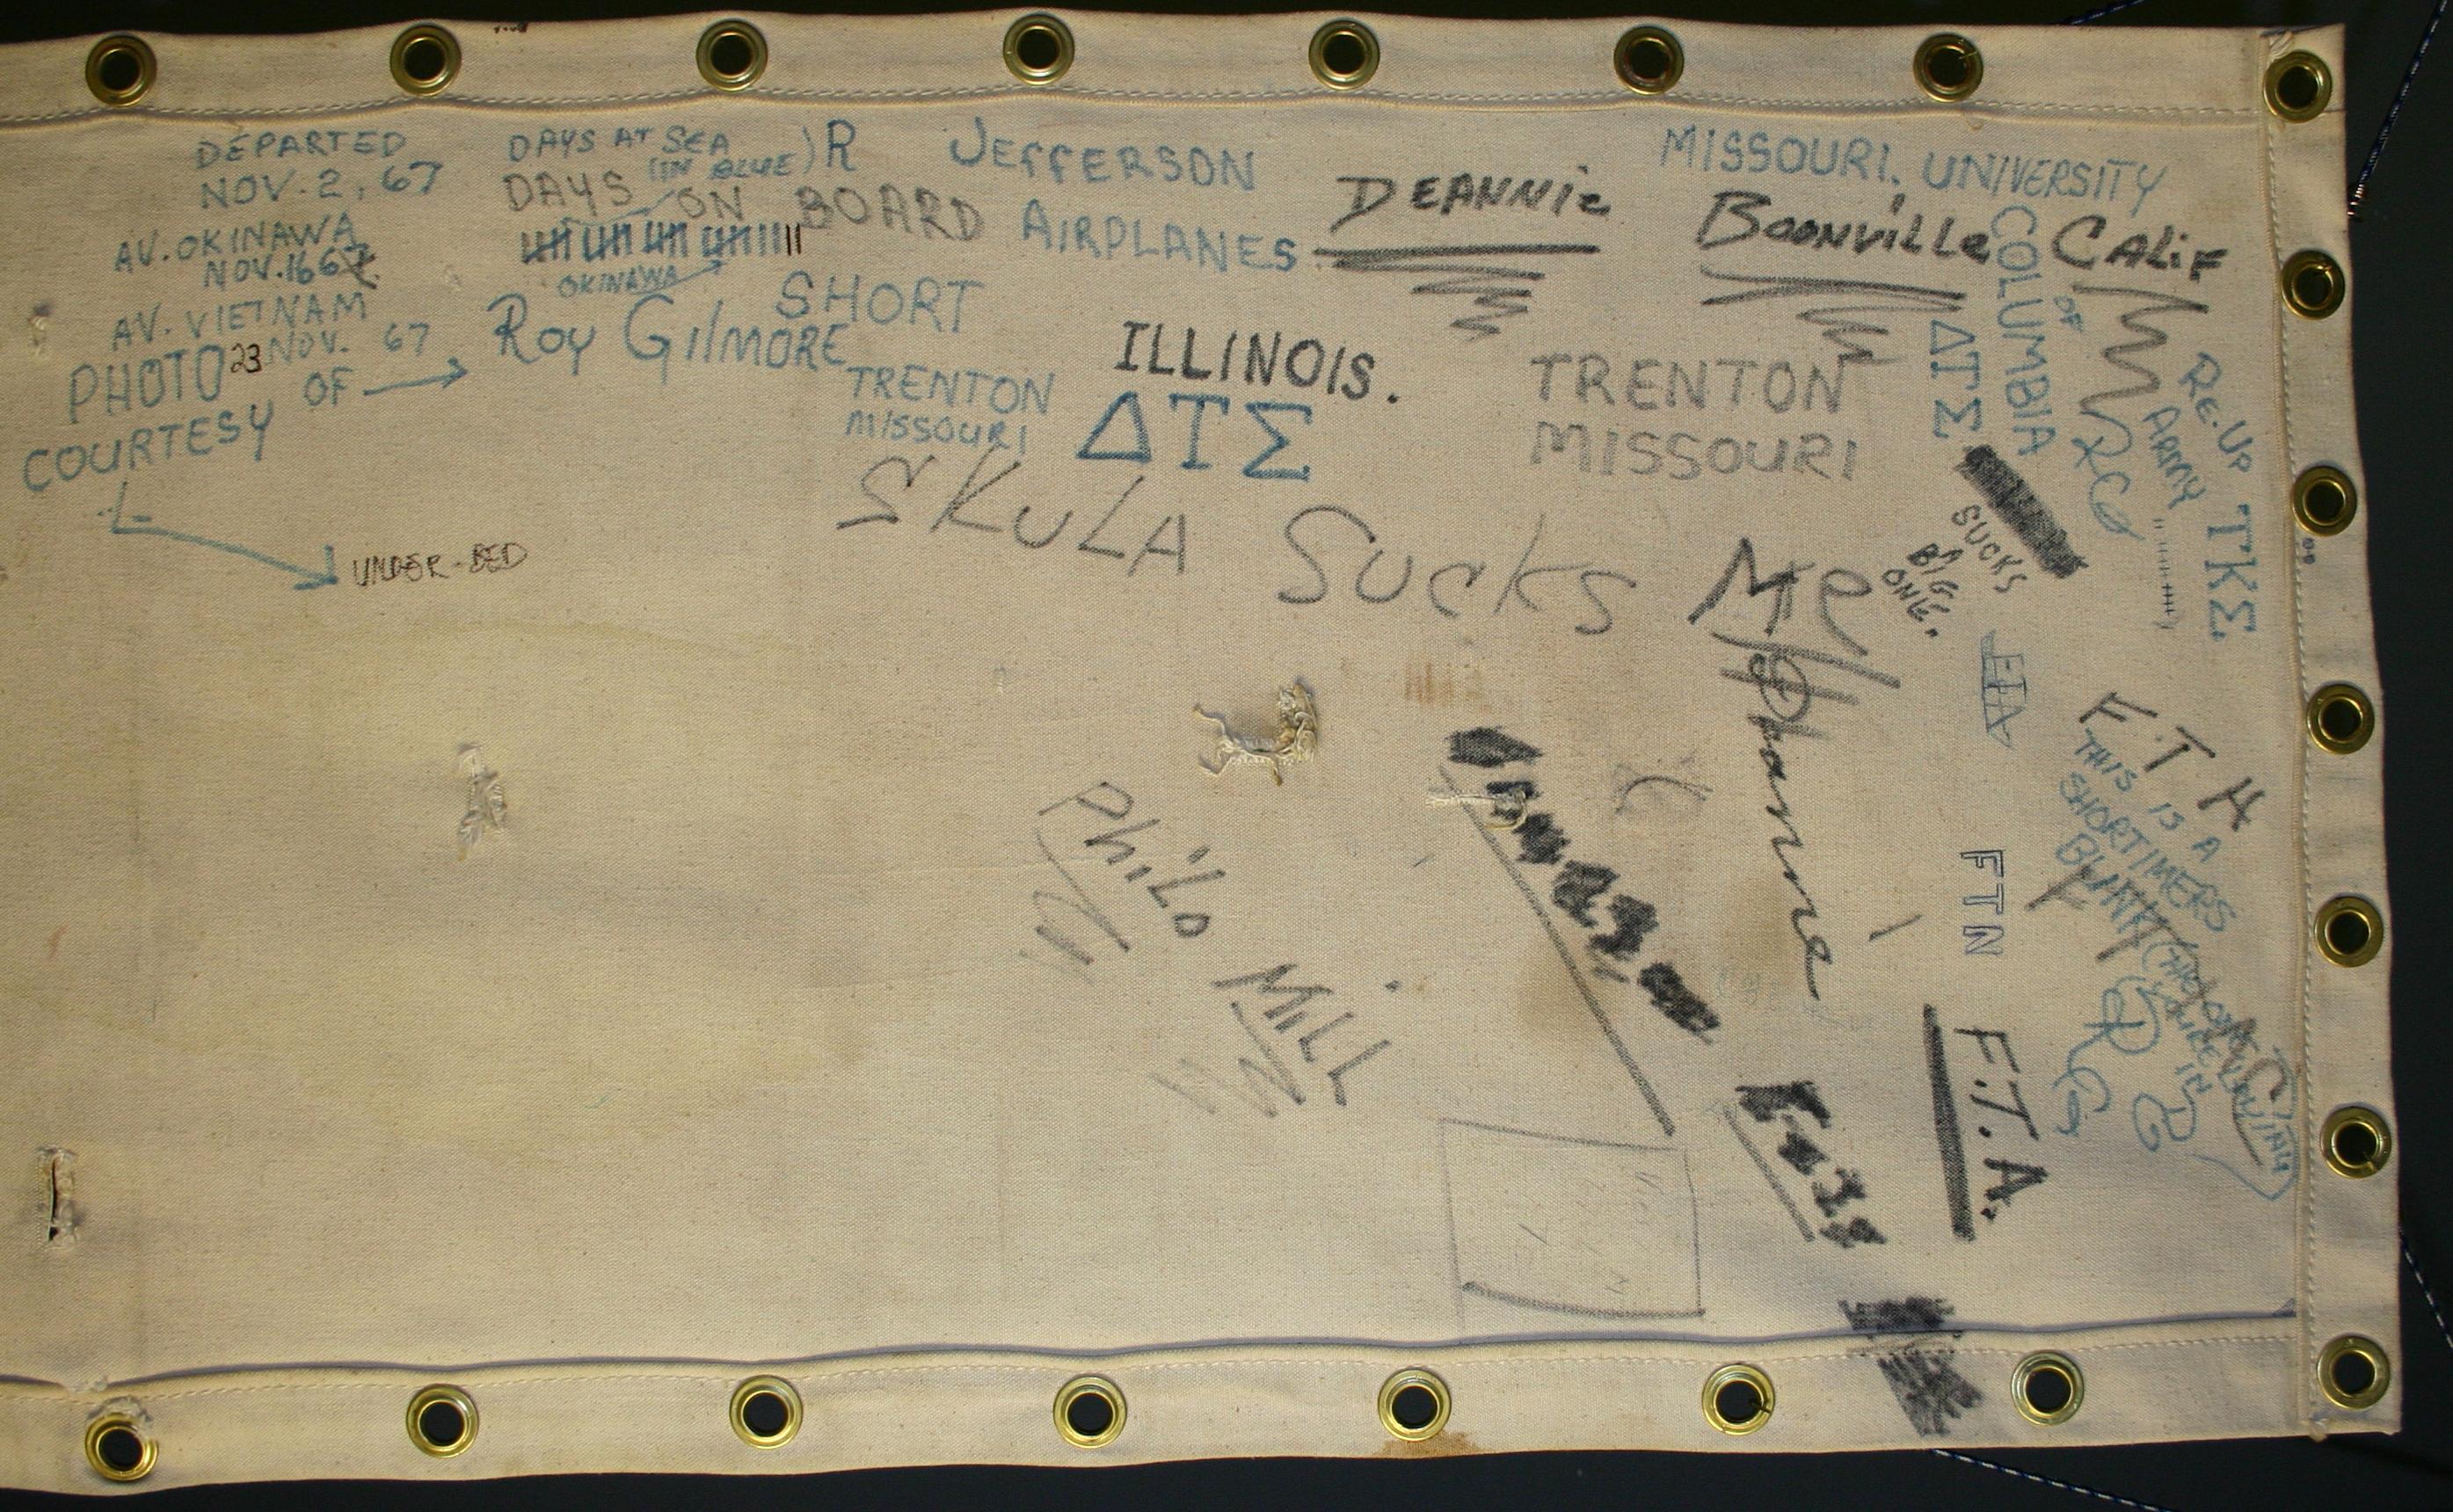 DEPARTED
NOV. 2, 67
AV. OKINAWA
NOV. 16 67
AV. VIETNAM
23 NOV. 67
PHOTO OF
COURTESY
UNDER-BED
DAYS AT SEA
(IN BLUE)
DAYS ON BOARD
OKINAWA
R
SHORT
Roy GilMORE
TRENTON
MISSOURI
JEFFERSON
AIRPLANES
ILLINOIS.
ΔΤΣ
DEANNiE
MISSOURI. UNIVERSITY
OF
COLUMBIA
BOONViLLe CALiF
TRENTON
MISSOURI
ΔΤΣ
RG
RE-UP
ARMY
ΤΚΣ
SKULA SUCKS ME
SUCKS
A
BIG
ONE.
PhiLo MiLL
F.T.A
THIS IS A
SHORTIMERS
FTN
F.T.A.